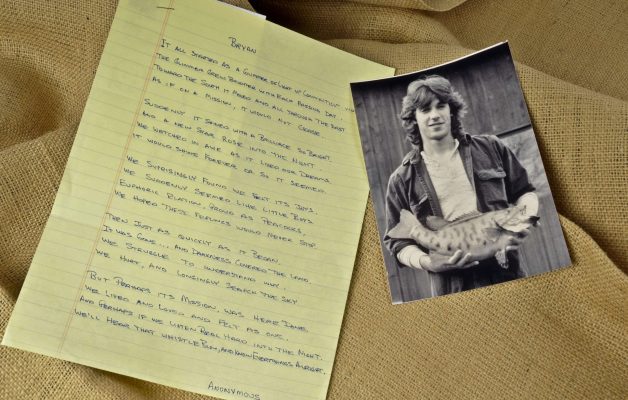 Bryan
It all started as a glimmer of light up Connecticut way
The glimmer grew brighter with each passing day..
Toward the South it moved and all through the East
As if on a mission, it would not cease
Suddenly it shined with a brilliance so bright
And a new star rose into the night
We watched in awe as it lived our dreams
It would shine forever or so it seemed
We surprisingly found we felt its joys.
We suddenly seemed like little boys
Euphoric elation, proud as peacocks,
We hoped these feelings would never stop.
Then just as quickly as it began
It was gone... and darkness covered the land.
We struggle to understand why.
We hurt, and longingly search the sky
But perhaps its mission, was here done.
We lived and loved and felt as one.
And perhaps if we listen real hard into the night.
We'll hear that whistle blow, and know everythings alright.
Anonymous